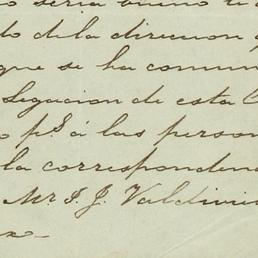 o seria bueno te d
do dela direccion q
que se ha comun
Legacion de esta C
o pS. á las person
la correspondenc
Mr. J. J. Valdivi